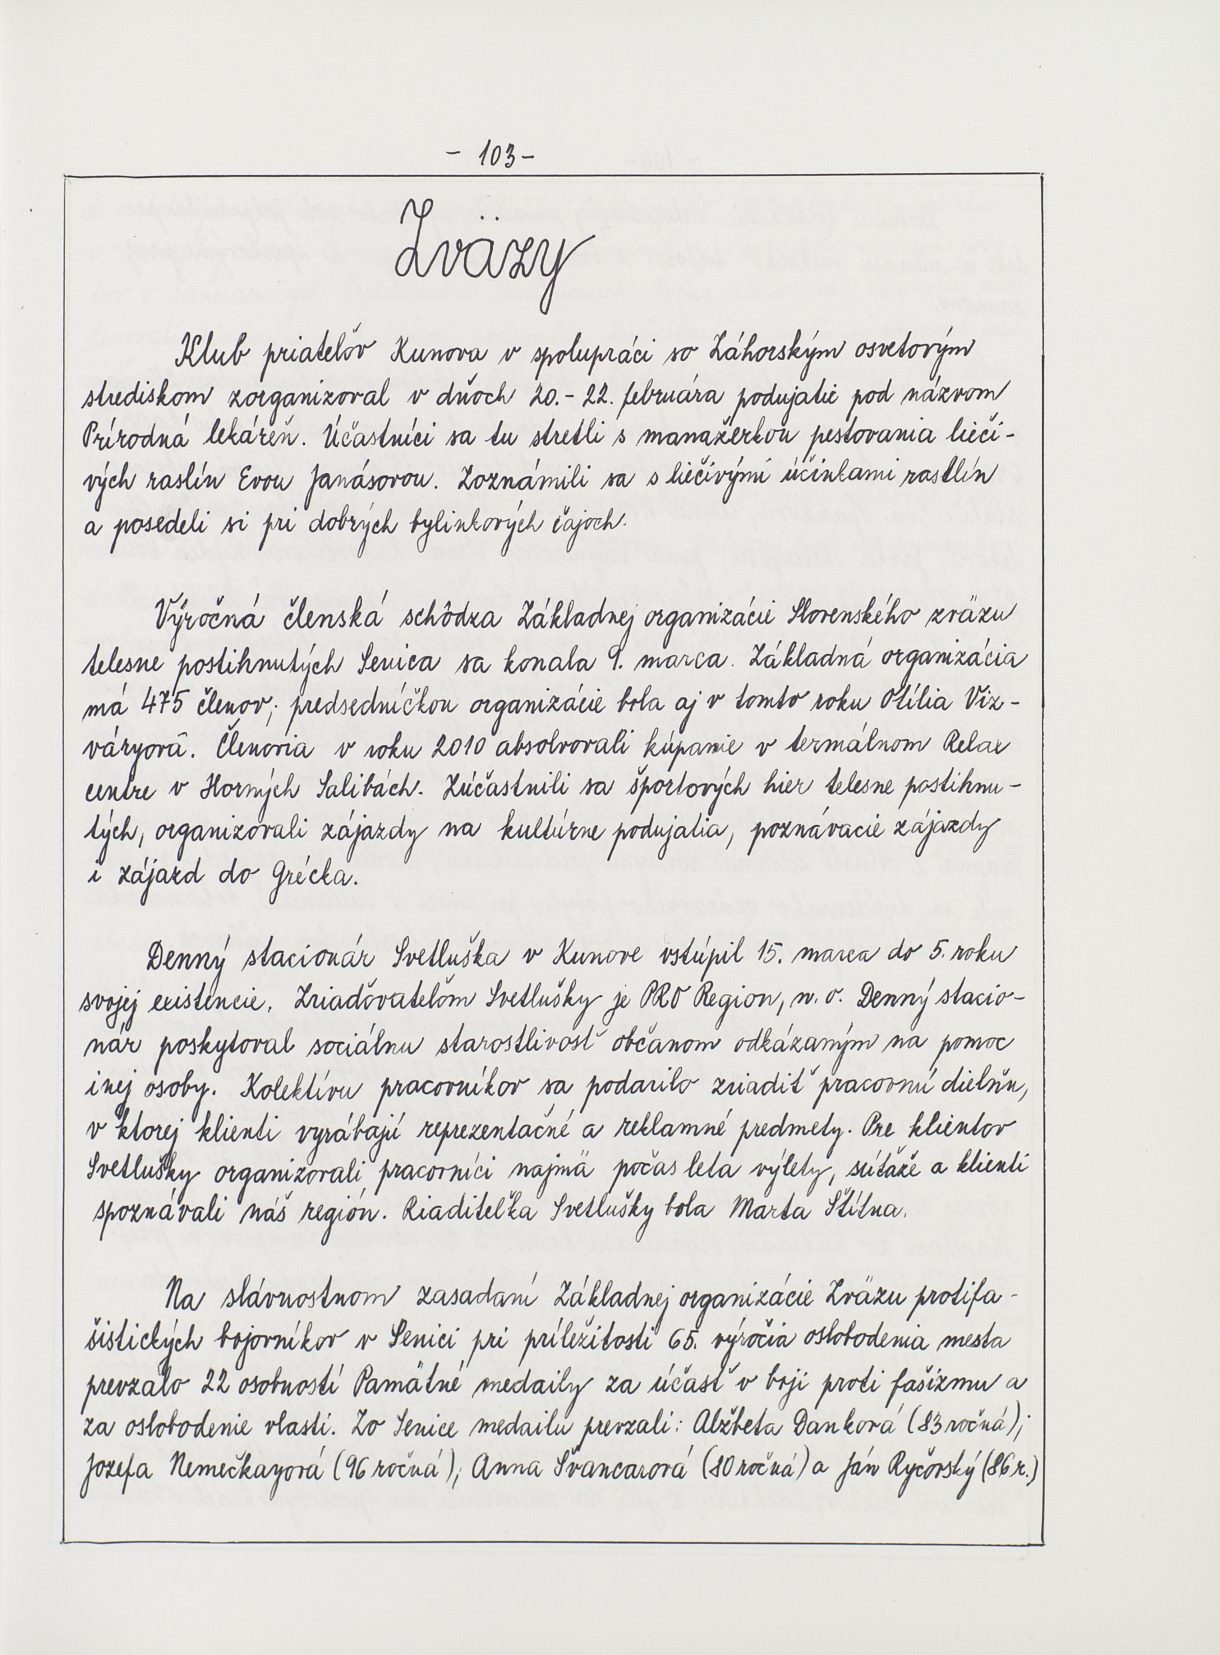 - 103 -
Zväzy
Klub priateľov Kunova v spolupráci so Záhorským osvetovým
strediskom zorganizoval v dňoch 20.- 22. februára podujatie pod názvom
Prírodná lekáreň. Účastníci sa tu stretli s manažérkou pestovania lieči-
vých raslín Evou Janásovou. Zoznámili sa s liečivými účinkami rastlín
a posedeli si pri dobrých bylinkových čajoch.
Výročná členská schôdza Základnej organizácie Slovenského zväzu
telesne postihnutých Senica sa konala 9. marca. Základná organizácia
má 475 členov; predsedníčkou organizácie bola aj v tomto roku Otília Viz-
váryová. Členovia v roku 2010 absolvovali kúpanie v termálnom Relax
centre v Horných Salibách. Zúčastnili sa športových hier telesne postihnu-
tých, organizovali zájazdy na kultúrne podujatia, poznávacie zájazdy
i zájazd do Grécka.
Denný stacionár Svetluška v Kunove vstúpil 15. marca do 5. roku
svojej existencie. Zriaďovateľom Svetlušky je PRO Region, n. o. Denný stacio-
nár poskytoval sociálnu starostlivosť občanom odkázaným na pomoc
inej osoby. Kolektívu pracovníkov sa podarilo zriadiť pracovnú dielňu,
v ktorej klienti vyrábajú reprezentačné a reklamné predmety. Pre klientov
Svetlušky organizovali pracovníci najmä počas leta výlety, súťaže a klienti
spoznávali náš región. Riaditeľka Svetlušky bola Marta Štítna.
Na slávnostnom zasadaní Základnej organizácie Zväzu protifa-
šistických bojovníkov v Senici pri príležitosti 65. výročia oslobodenia mesta
prevzalo 22 osobností Pamätné medaily za účasť v boji proti fašizmu a
za oslobodenie vlasti. Zo Senice medailu prevzali: Alžbeta Danková (83 ročná);
Jozefa Nemečkayová (96 ročná); Anna Švancarová (80 ročná) a Ján Ryčovský (86 r.)